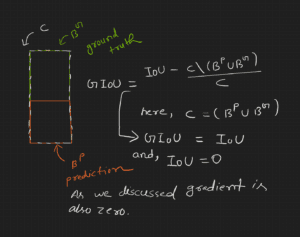 C
B^G
ground truth
GIoU = IoU - C\(B^P ∪ B^G) / C
here, C = (B^P ∪ B^G)
→ GIoU = IoU
and, IoU = 0
B^P
prediction
As we discussed gradient is
also zero.